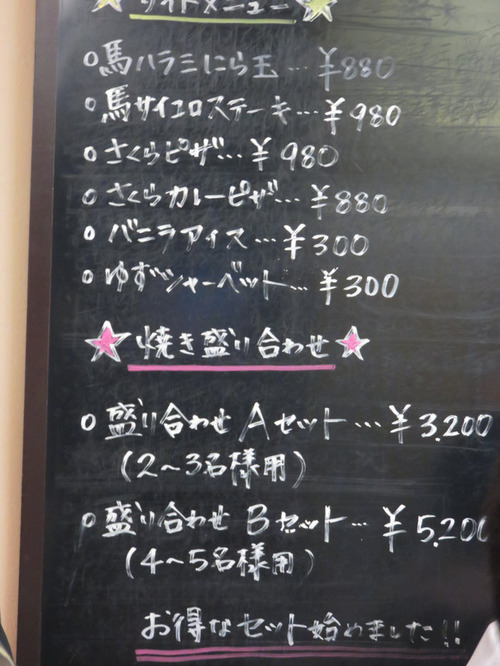 サイドメニュー
○馬ハラミにら玉…¥880
○馬サイコロステーキ…¥980
○さくらピザ…¥980
○さくらカレーピザ…¥880
○バニラアイス…¥300
○ゆずシャーベット…¥300
☆焼き盛り合わせ☆
○盛り合わせ Aセット…¥3,200
(2〜3名様用)
○盛り合わせ Bセット…¥5,200
(4〜5名様用)
お得なセット始めました!!